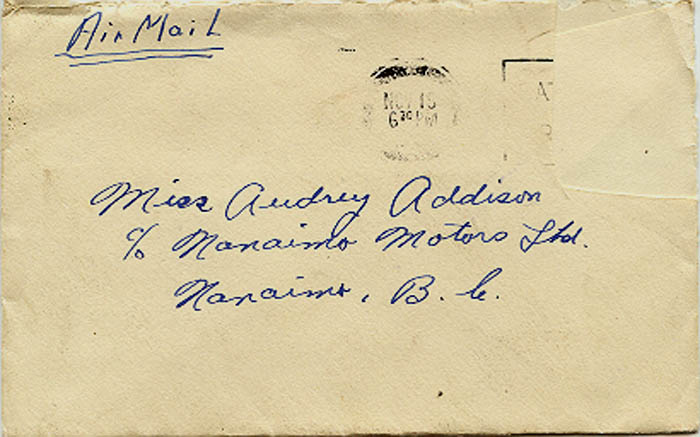 Air Mail
NOV 15
6 30 PM
Miss Audrey Addison
c/o Nanaimo Motors Ltd.
Nanaimo, B.C.